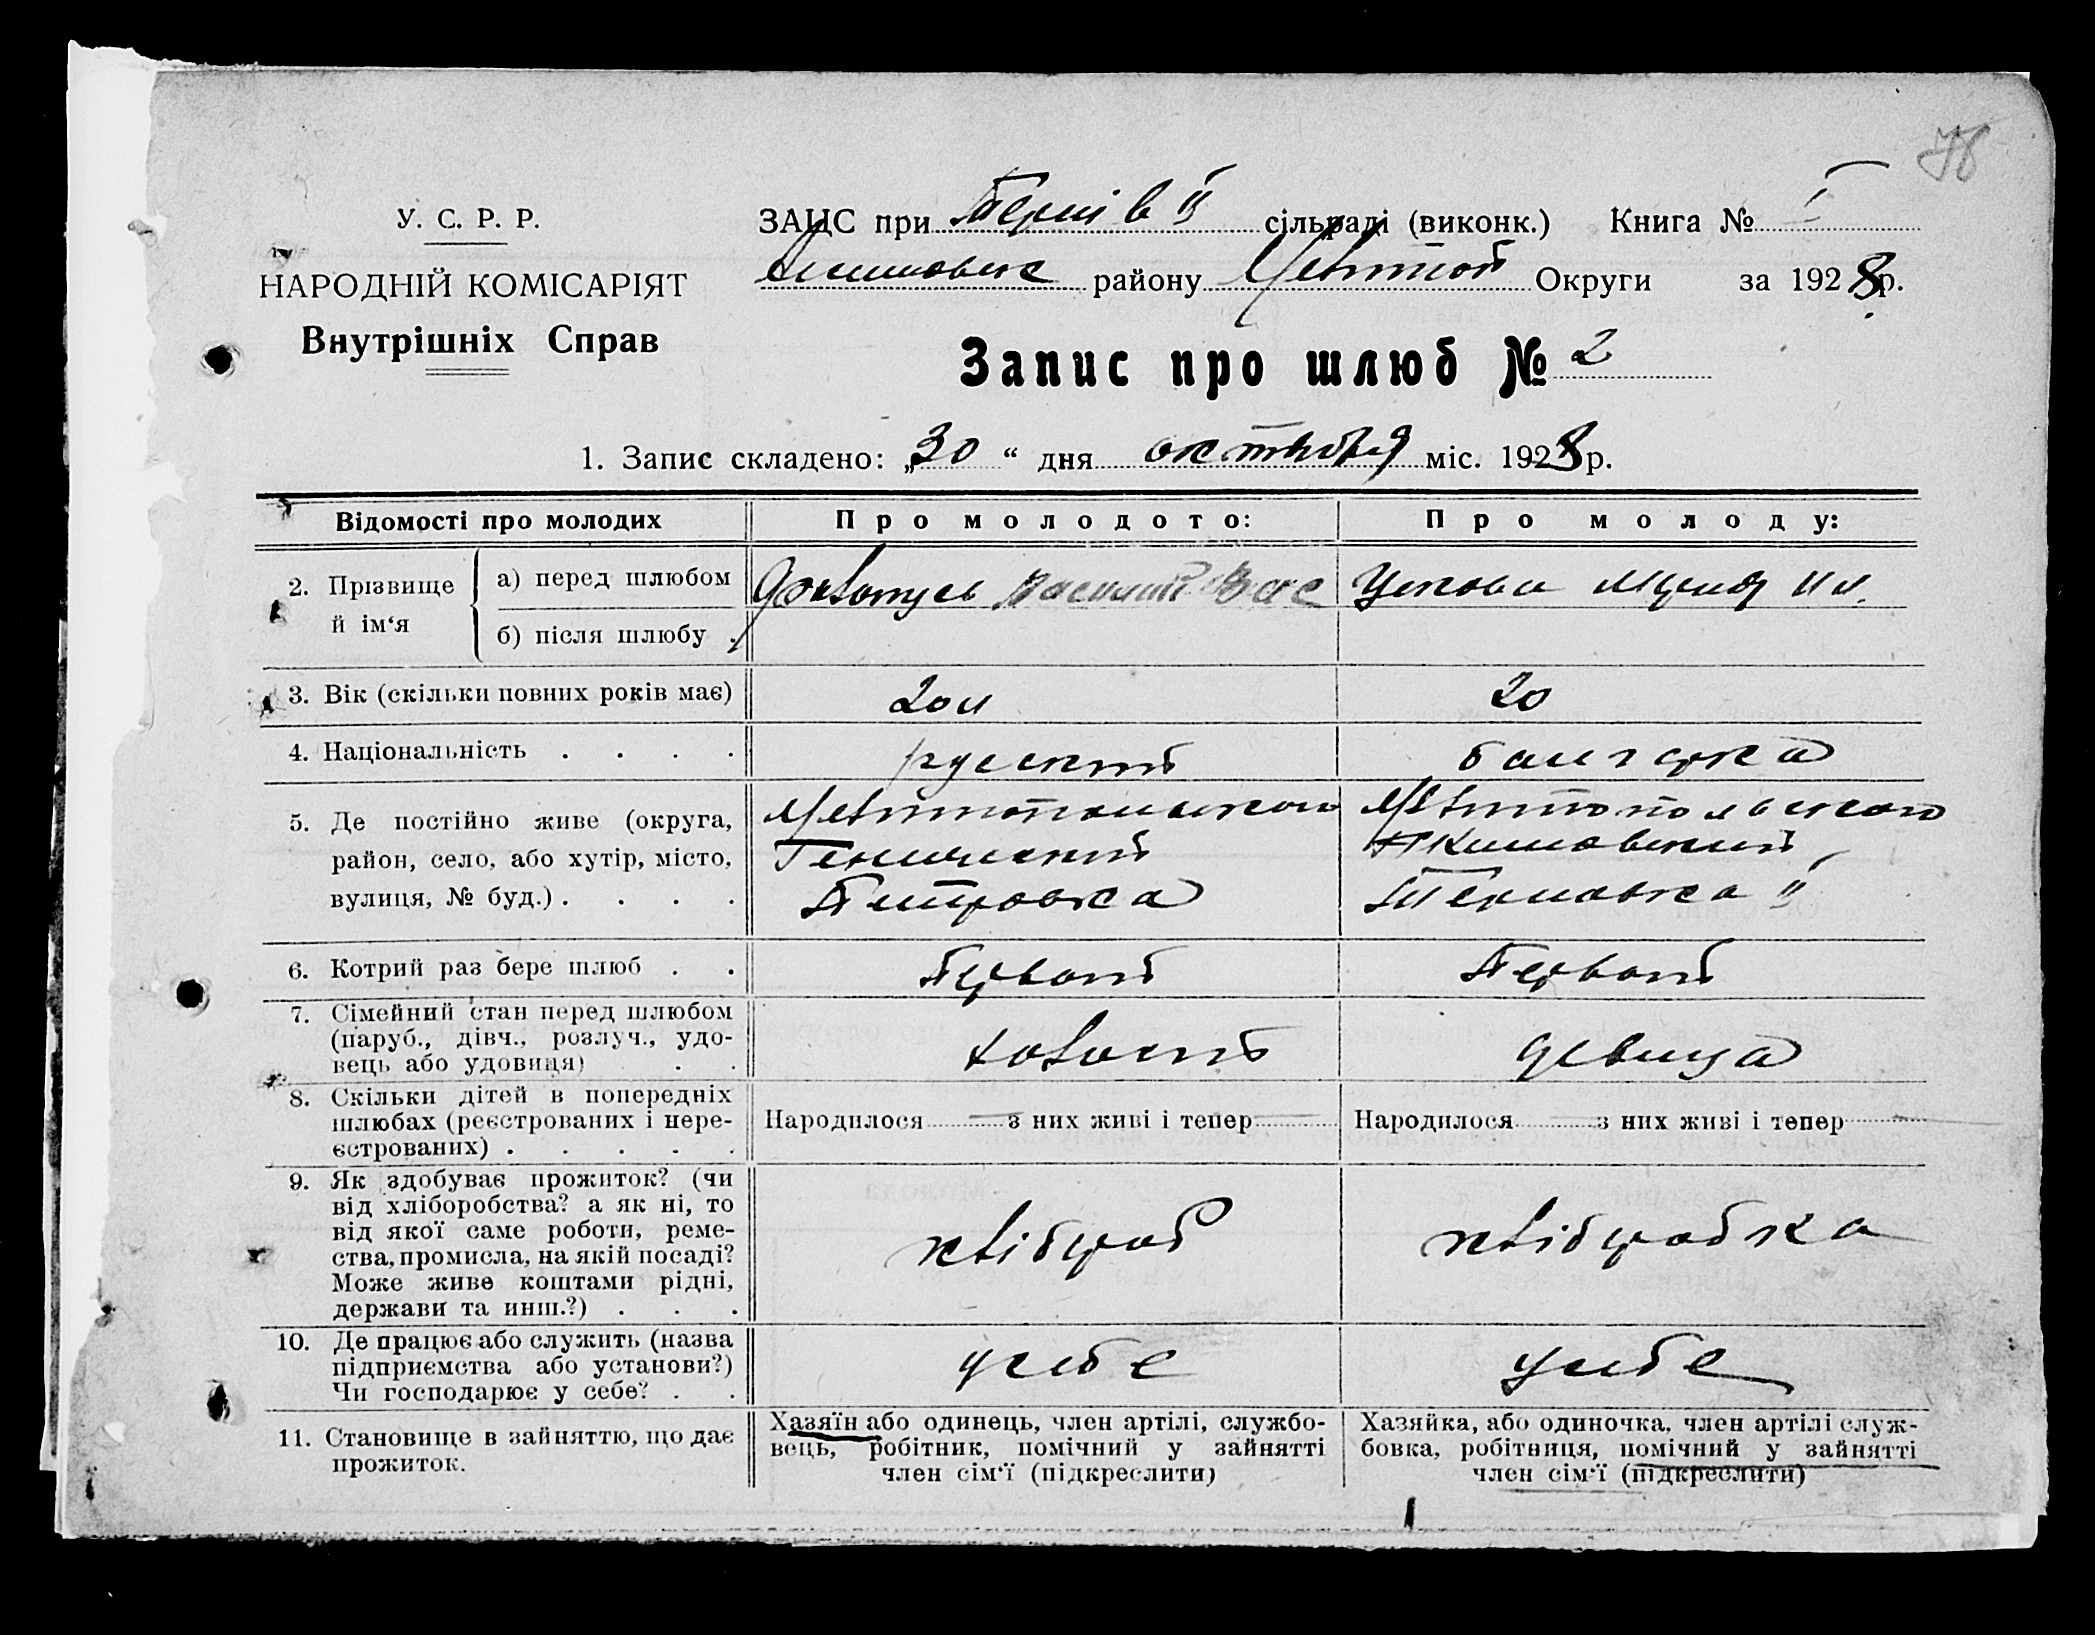 78
У. С. Р. Р.
НАРОДНІЙ КОМІСАРІЯТ
Внутрішніх Справ
ЗАЦС при Терні в II сільраді (виконк.) Книга № I
району Меліттоп Округи за 1928 р.
Запис про шлюб № 2
1. Запис складено: „30“ дня октября міс. 1928 р.
Відомості про молодих Про молодого: Про молоду:
2. Прізвище й ім‘я
а) перед шлюбом Василий Вас
б) після шлюбу .
3. Вік (скільки повних років має) 20 20
4. Національність . . . . руский балгарка
5. Де постійно живе (округа,
район, село, або хутір, місто,
вулиця, № буд.) . . . .
Мелитопольского
Генический
Петровка
Мелитопольского
Якимовский
Терновка II
6. Котрий раз бере шлюб . . Первый Первый
7. Сімейний стан перед шлюбом
(паруб., дівч., розлуч., удо-
вець або удовиця) . .
холостий девица
8. Скільки дітей в попередніх
шлюбах (реєстрованих і нере-
єстрованих) . . . . .
Народилося з них живі і тепер Народилося з них живі і тепер
9. Як здобуває прожиток? (чи
від хліборобства? а як ні, то
від якої саме роботи, реме-
ства, промисла, на якій посаді?
Може живе коштами рідні,
держави та инш.?) . . .
хлібороб хліборобка
10. Де працює або служить (назва
підприємства або установи?)
Чи господарює у себе? . .
у себе у себе
11. Становище в зайняттю, що дає
прожиток.
Хазяїн або одинець, член артілі, службо-
вець, робітник, помічний у зайнятті
член сім‘ї (підкреслити)
Хазяйка, або одиночка, член артілі служ-
бовка, робітниця, помічний у зайнятті
член сім‘ї (підкреслити)